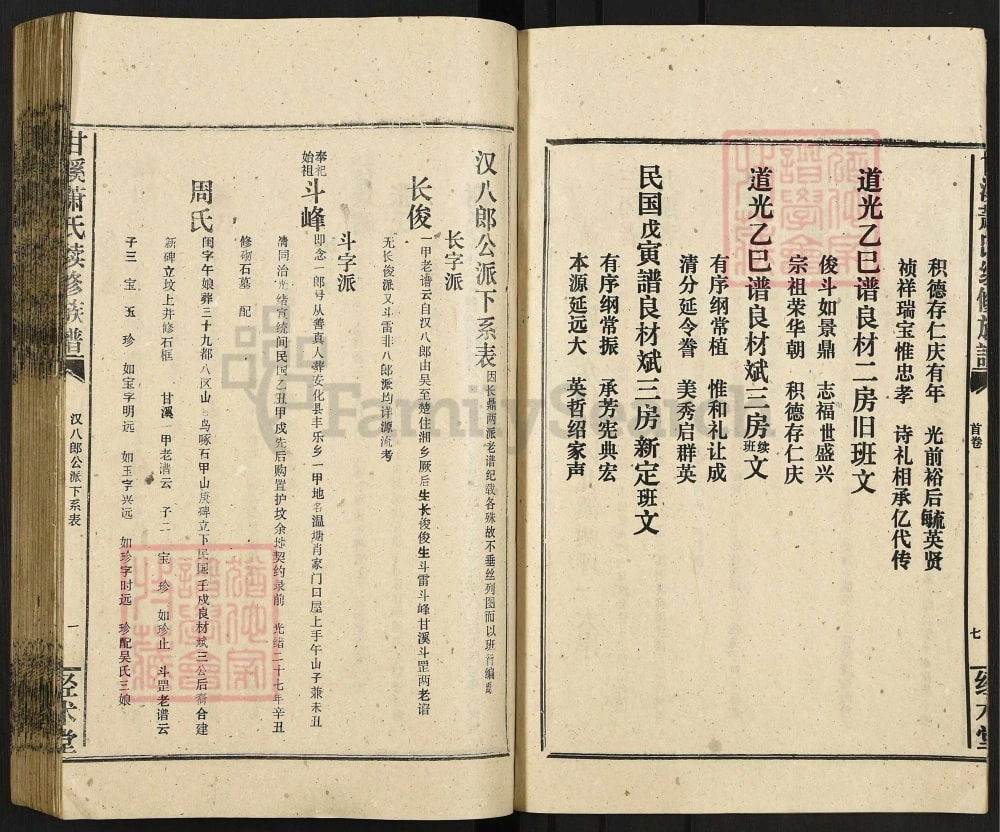 积德存仁庆有年　光前裕后毓英贤
祯祥瑞宝惟忠孝　诗礼相承亿代传
道光乙巳谱良材二房旧班文
俊斗如景鼎　志福世盛兴
宗祖荣华朝　积德存仁庆
道光乙巳谱良材斌三房续班文
有序纲常植　惟和礼让成
清分延令誉　美秀启群英
民国戊寅譜良材斌三房新定班文
有序纲常振　承芳宪典宏
本源延远大　英哲绍家声
首卷
七
汉八郎公派下系表 因长鼎两派老谱纪载各殊故不垂丝列图而以班行编焉
长字派
长俊 一甲老谱云自汉八郎由吴至楚住湘乡厥后生长俊俊生斗雷斗峰甘溪斗罡两老谱
无长俊派又斗雷非八郎派均详源流考
斗字派
奉祀始祖 斗峰 即念一郎号从善真人葬安化县丰乐乡一甲地名温塘肖家门口屋上手午山子兼未丑
清同治光绪宣统间民国乙丑甲戍先后购置护坟余地契约录前　光绪二十七年辛丑
修砌石墓　配
周氏 闺字午娘葬三十九都八区山
新碑立坟上并修石框　甘溪一甲老谱云　子二　宝　珍　如珍止　斗罡老谱云
子三　宝　玉　珍　如宝字明远　如玉字兴远　如珍字时远　珍配吴氏三娘
甘溪萧氏续修族谱
汉八郎公派下系表
一
FamilySearch